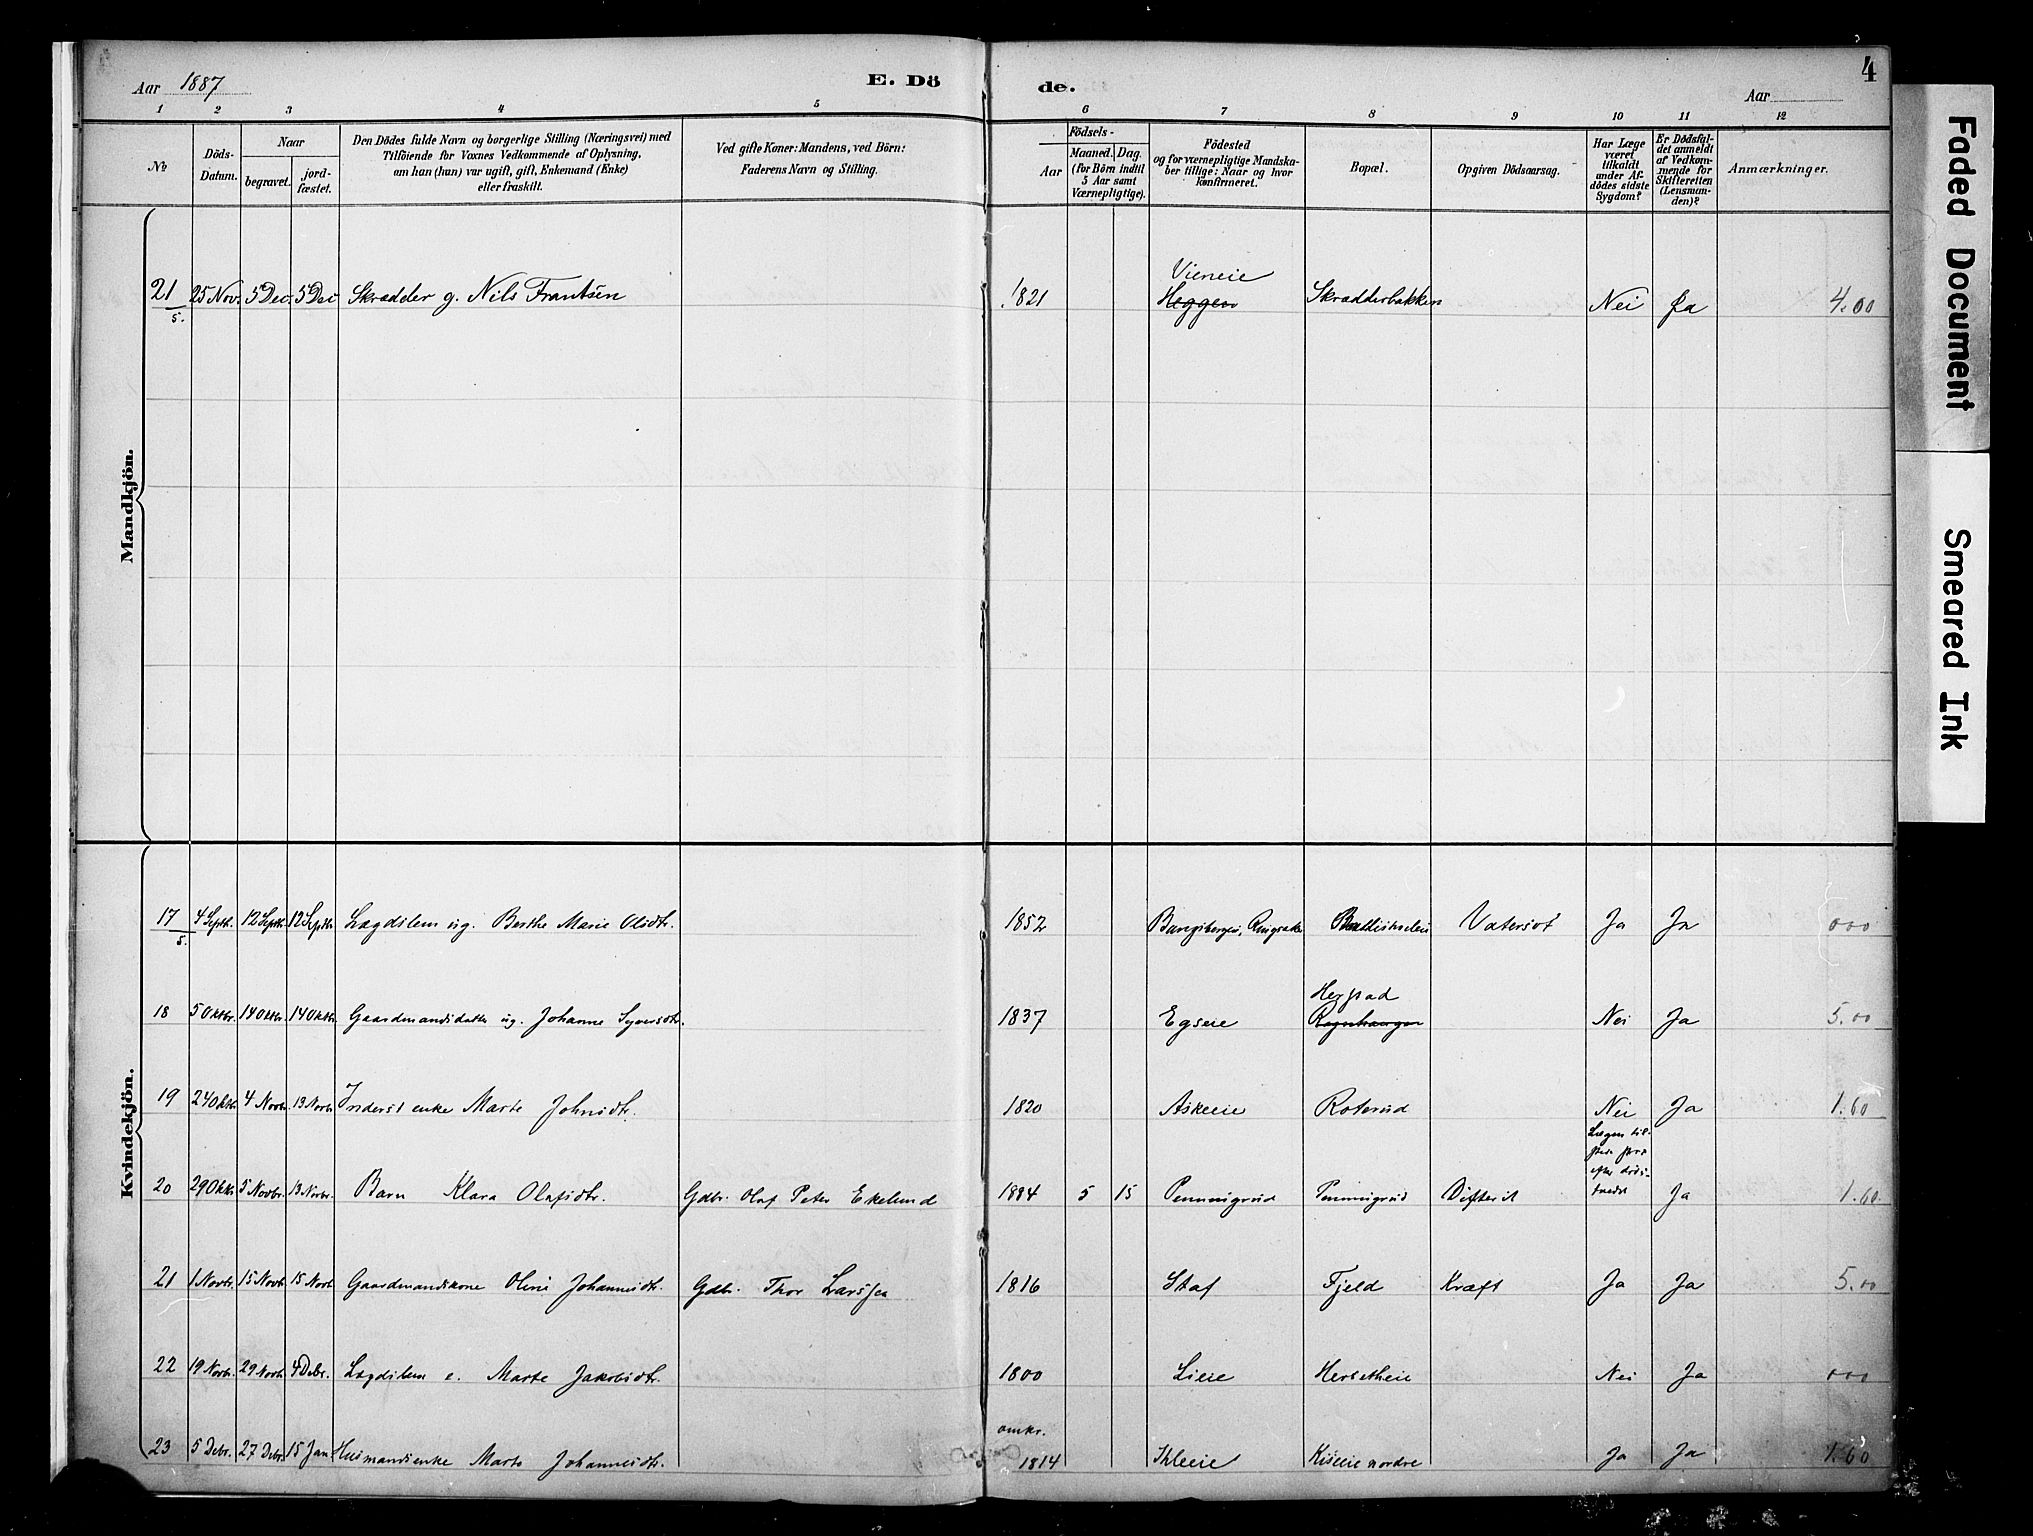 Aar 1887
E. Dö
de.
4
Aar
1 2 3 4 5 6 7 8 9 10 11 12
No
Döds-
Datum.
Naar
begravet.
jord-
fæstet.
Den Dödes fulde Navn og borgerlige Stilling (Næringsvei) med
Tilföiende for Voxnes Vedkommende af Oplysning,
om han (hun) var ugift, gift, Enkemand (Enke)
eller fraskilt.
Ved gifte Koner: Mandens, ved Börn:
Faderens Navn og Stilling.
Födsels-
Aar
Maaned. Dag.
(for Börn indtil
5 Aar samt
Værnepligtige).
Födested
og for værnepligtige Mandska-
ber tillige: Naar og hvor
konfirmeret.
Bopæl.
Opgiven Dödsaarsag.
Har Læge
været
tilkaldt
under Af-
dödes sidste
Sygdom?
Er Dödsfal-
det anmeldt
af Vedkom-
mende for
Skifteretten
(Lensman-
den)?
Anmærkninger.
Mandkjön.
Vieneie
21 25 Nov. 5 Dec. 5 Dec Skrædder g. Nils Frantsen 1821 Heggen Skrædderbakken Nei Ja 4.00
5.
Kvindekjön.
17 4 Septb. 12 Septb. 12 Septb. Lægdslem ug. Berthe Marie Olsdtr. 1852 Ringsaker Vatersot Ja Ja 000
5.
Hegstad
18 5 Oktbr. 14 Oktbr. 14 Oktbr. Gaardmandsdatter ug. Johanne Syversdtr. 1837 Egseie Nei Ja 5.00
19 24 Oktbr. 4 Novbr. 13 Novbr Inderst enke Marte Johnsdtr. 1820 Askeeie Roterud Nei Ja 1.60
Lægen til-
efter döds-
20 29 Oktbr. 5 Novbr. 13 Novbr. Barn Klara Olafsdtr. Gdbr. Olaf Peter Ekelund 1884 5 15 Pennigrud Pennigrud Difterit Ja 1.60
21 1 Novbr. 15 Novb. 15 Novb Gaardmandskone Oline Johannesdtr. Gdbr. Thor Larssen 1816 Staf Fjeld Kræft Ja Ja 5.00
22 19 Novb. 29 Novb. 4 Debr. Lægdslem e. Marte Jakobsdtr. 1800 Lieie Herset­heie Nei Ja 000
omkr.
23 5 Debr. 27 Debr. 15 Jan Husmandsenke Marte Johannesdtr. 1814 Ihleeie Kiseeie nordre Ja Ja 1.60
Faded Document
Smeared Ink